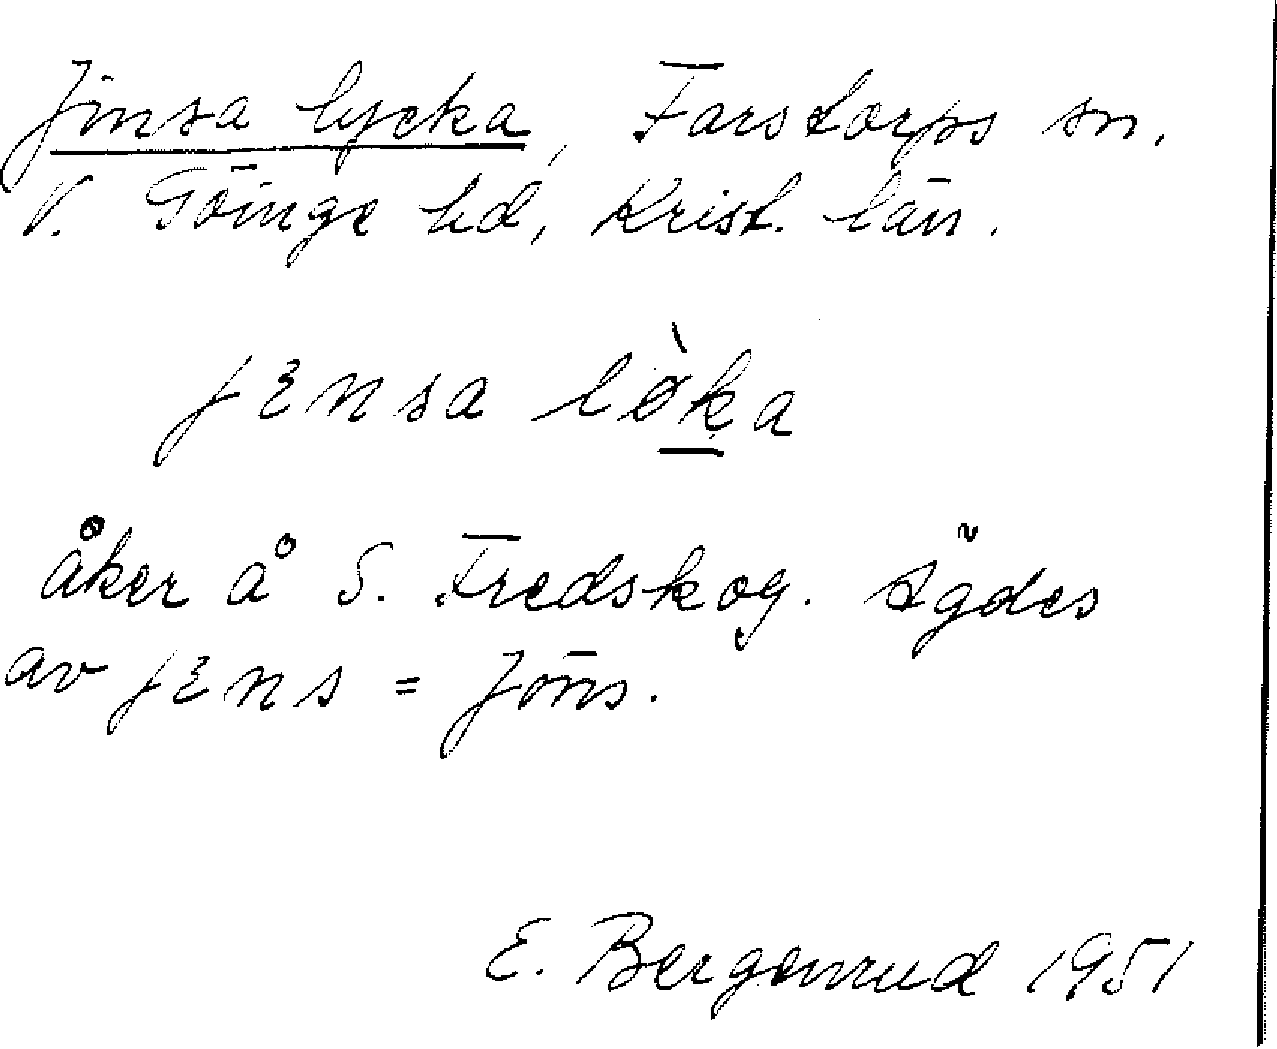 Jinsa lycka, Farstorps sn.
V. Göinge hd, Krist. län.
jɛnsa lø̀ka
åker å S. Fredskog. Ägdes
av jɛns = Jöns.
E. Bergenrud 1951